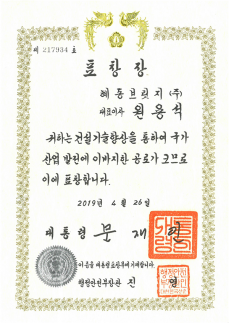 제 217934 호
표창장
혜동브릿지(주)
대표이사 원용석
귀하는 건설기술향상을 통하여 국가
산업 발전에 이바지한 공로가 크므로
이에 표창합니다.
2019년 4월 26일
대통령 문재인
이 증을 대통령표창부에 기재합니다.
행정안전부장관 진 영